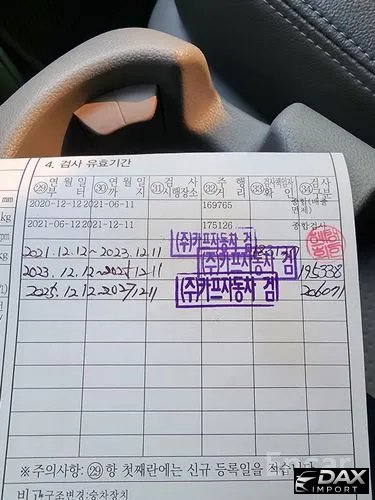 4. 검사 유효기간
㉙연월일부터 ㉚연월일까지 ㉛검사시행장소 ㉜주행거리 ㉝검사책임자확인 ㉞검사구분
2020-12-12 2021-06-11 169765 종합(배출면제)
2021-06-12 2021-12-11 175126 종합검사
2021.12.12~2023.12.11 (주)카프자동차 검
2023.12.12~ 12.11 (주)카프자동차 검 195338
2025.12.12~2027.12.11 (주)카프자동차 검 206071
※주의사항: ㉙항 첫째란에는 신규 등록일을 적습니다
비고 구조변경·승차장치
kg
kg
rpm
mm
Encar
DAX
IMPORT